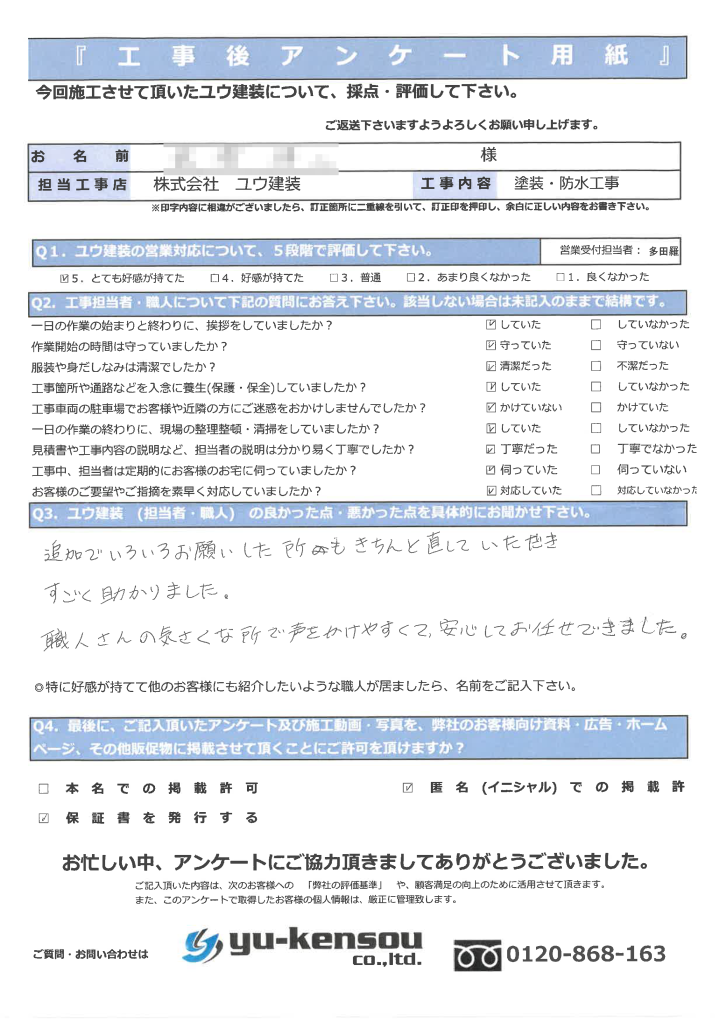 『工事後アンケート用紙』
今回施工させて頂いたユウ建装について、採点・評価して下さい。
ご返送下さいますようよろしくお願い申し上げます。
お名前 様
担当工事店 株式会社 ユウ建装 工事内容 塗装・防水工事
※印字内容に相違がございましたら、訂正箇所に二重線を引いて、訂正印を押印し、余白に正しい内容をお書き下さい。
Q1．ユウ建装の営業対応について、５段階で評価して下さい。 営業受付担当者： 多田羅
☑５．とても好感が持てた □４．好感が持てた □３．普通 □２．あまり良くなかった □１．良くなかった
Q2．工事担当者・職人について下記の質問にお答え下さい。該当しない場合は未記入のままで結構です。
一日の作業の始まりと終わりに、挨拶をしていましたか？ ☑していた □ していなかった
作業開始の時間は守っていましたか？ ☑守っていた □ 守っていない
服装や身だしなみは清潔でしたか？ ☑清潔だった □ 不潔だった
工事箇所や通路などを入念に養生(保護・保全)していましたか？ ☑していた □ していなかった
工事車両の駐車場でお客様や近隣の方にご迷惑をおかけしませんでしたか？ ☑かけていない □ かけていた
一日の作業の終わりに、現場の整理整頓・清掃をしていましたか？ ☑していた □ していなかった
見積書や工事内容の説明など、担当者の説明は分かり易く丁寧でしたか？ ☑丁寧だった □ 丁寧でなかった
工事中、担当者は定期的にお客様のお宅に伺っていましたか？ ☑伺っていた □ 伺っていない
お客様のご要望やご指摘を素早く対応していましたか？ ☑対応していた □ 対応していなかった
Q3．ユウ建装 (担当者・職人) の良かった点・悪かった点を具体的にお聞かせ下さい。
追加でいろいろお願いした所もきちんと直していただき
すごく助かりました。
職人さんの気さくな所で声をかけやすくて、安心してお任せできました。
◎特に好感が持てて他のお客様にも紹介したいような職人が居ましたら、名前をご記入下さい。
Q4．最後に、ご記入頂いたアンケート及び施工動画・写真を、弊社のお客様向け資料・広告・ホーム
ページ、その他販促物に掲載させて頂くことにご許可を頂けますか？
□ 本名での掲載許可 ☑ 匿名(イニシャル)での掲載許
☑ 保証書を発行する
お忙しい中、アンケートにご協力頂きましてありがとうございました。
ご記入頂いた内容は、次のお客様への 「弊社の評価基準」 や、顧客満足の向上のために活用させて頂きます。
また、このアンケートで取得したお客様の個人情報は、厳正に管理致します。
ご質問・お問い合わせは yu-kensou co.,ltd. 0120-868-163